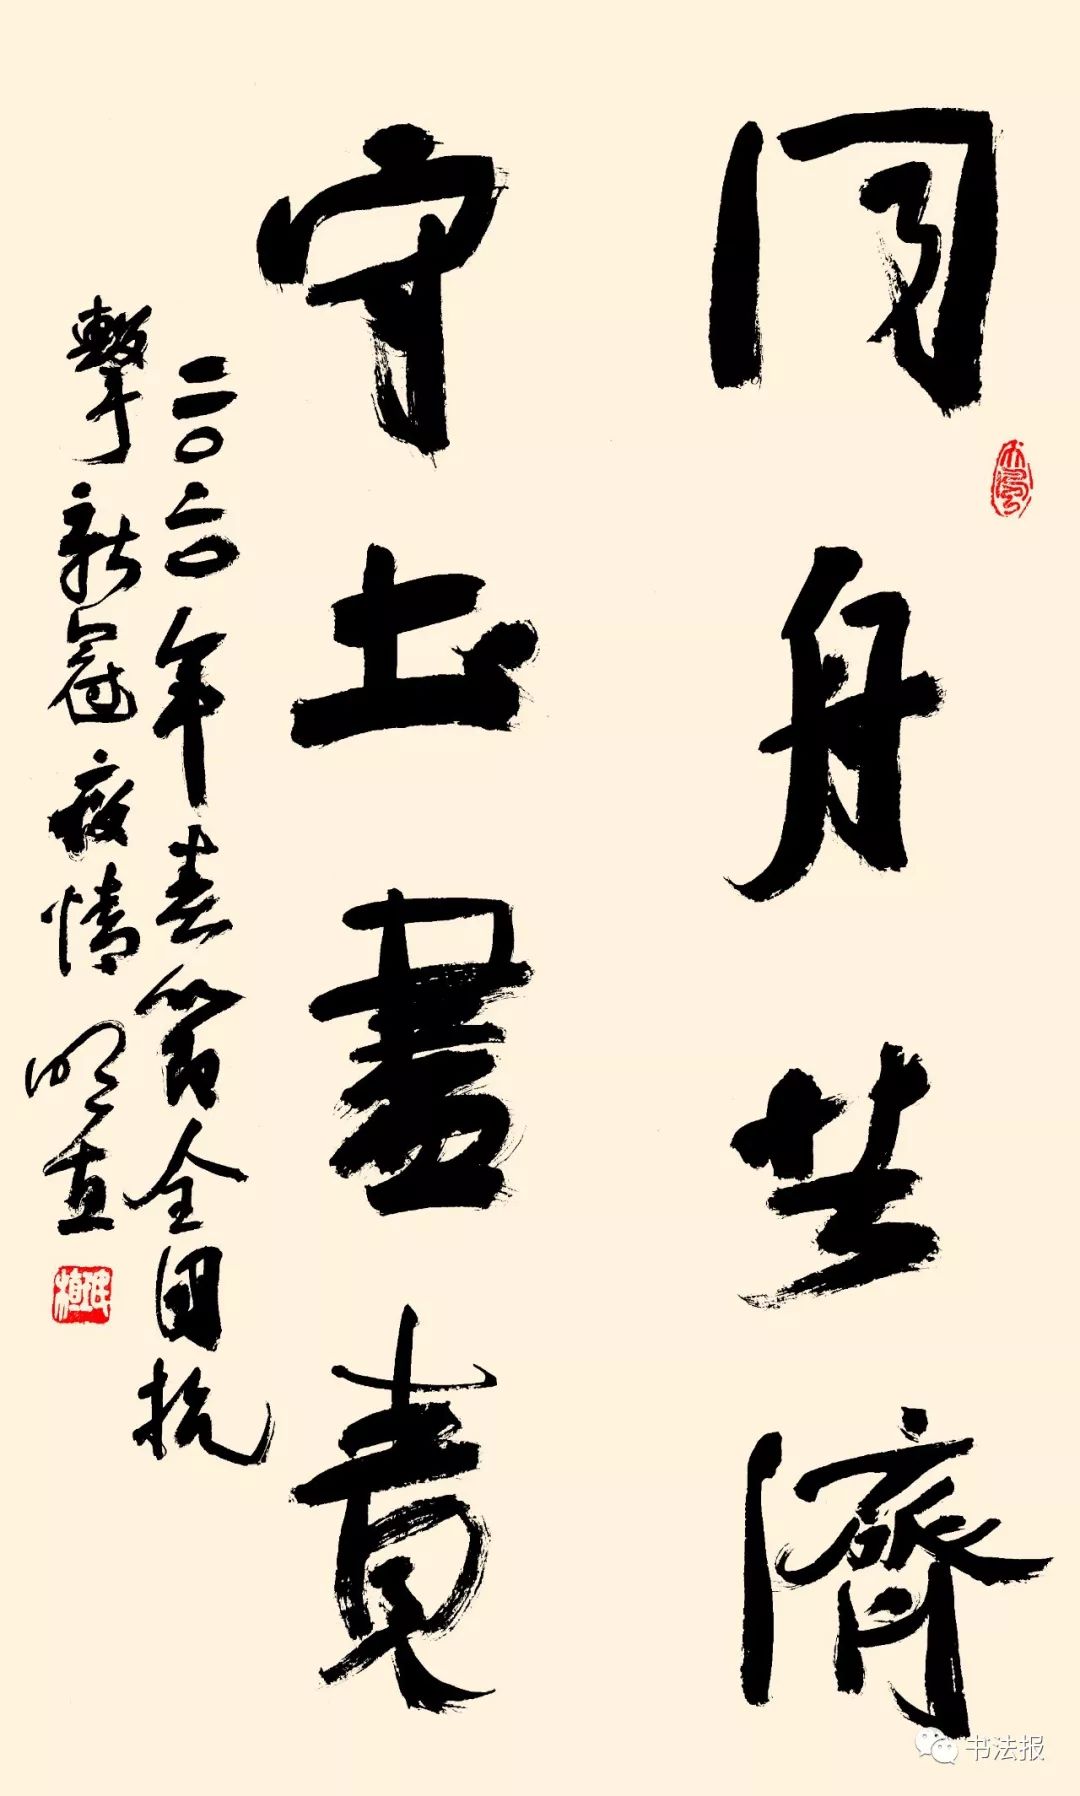 同舟共濟
守土盡責
二〇二〇年春節全國抗
擊新冠疫情 明直
书法报